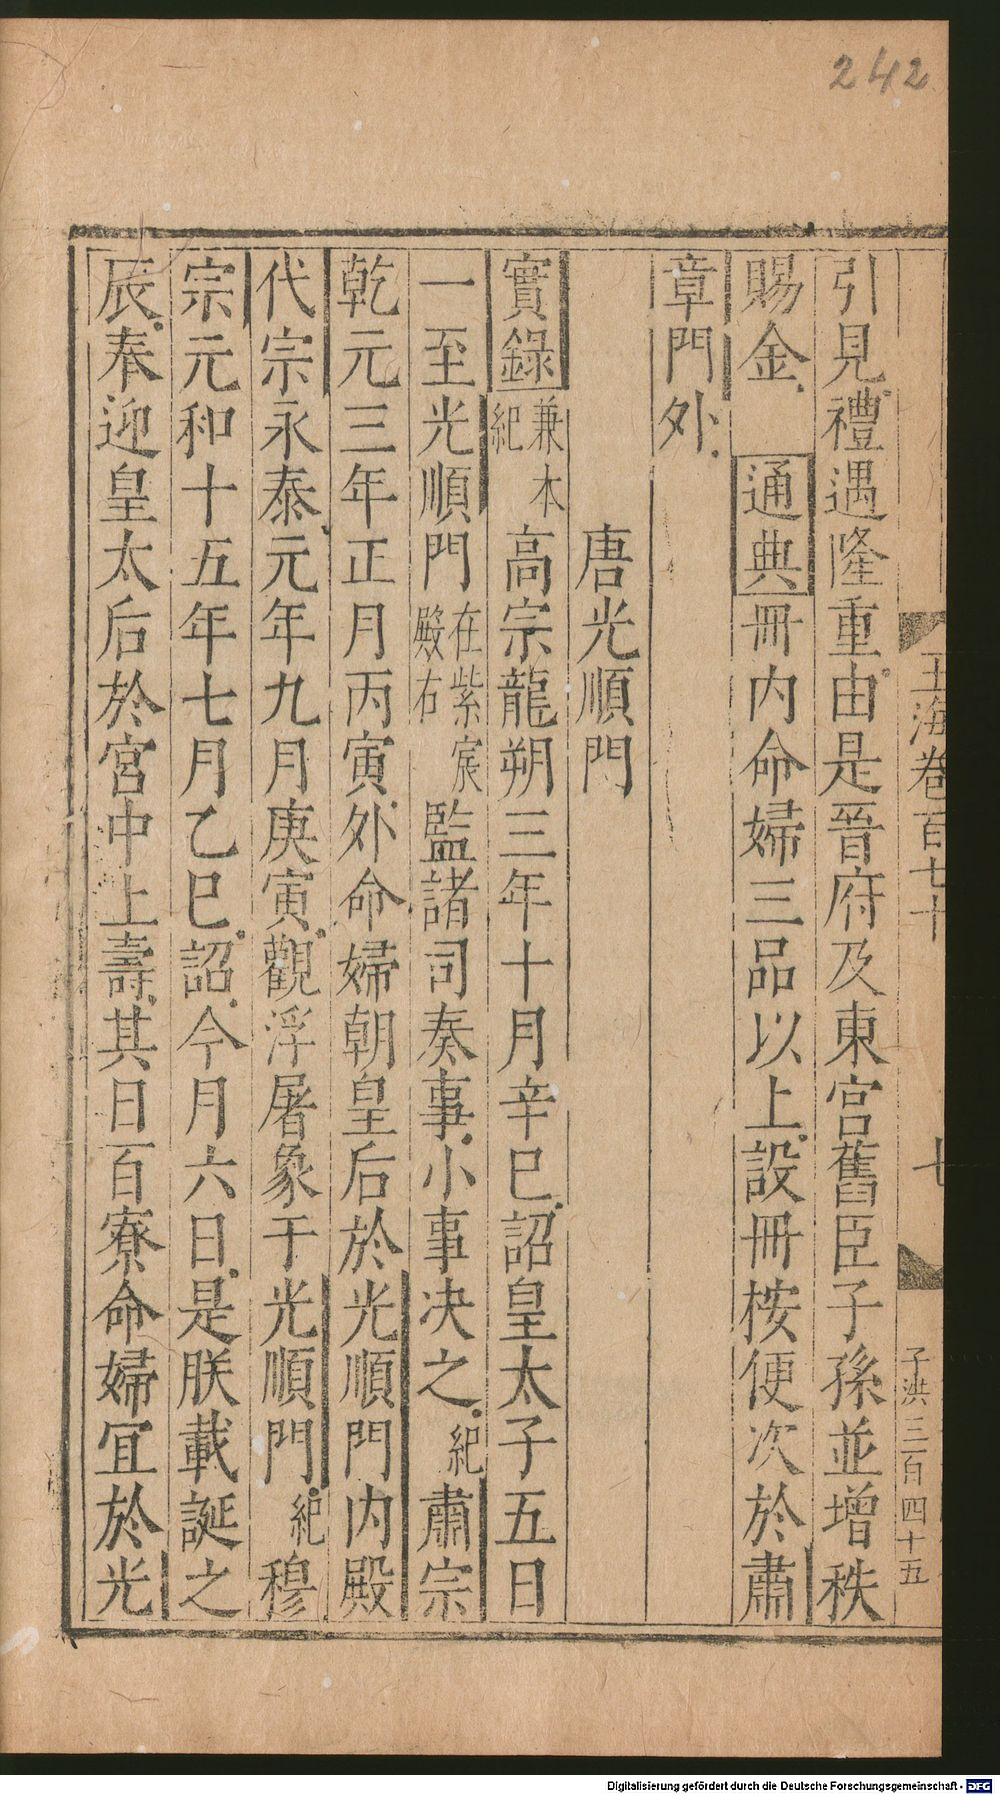 242
玉海卷百七十
七
子洪三百四十五
引見禮遇隆重由是晉府及東宮舊臣子孫並增秩
賜金 通典冊内命婦三品以上設冊桉便次於肅
章門外
唐光順門
實錄兼本紀高宗龍朔三年十月辛巳詔皇太子五日
一至光順門在紫宸殿右監諸司奏事小事决之紀肅宗
乾元三年正月丙寅外命婦朝皇后於光順門内殿
代宗永泰元年九月庚寅觀浮屠象于光順門紀穆
宗元和十五年七月乙巳詔今月六日是朕載誕之
辰奉迎皇太后於宮中上壽其日百寮命婦宜於光
Digitalisierung gefördert durch die Deutsche Forschungsgemeinschaft - DFG